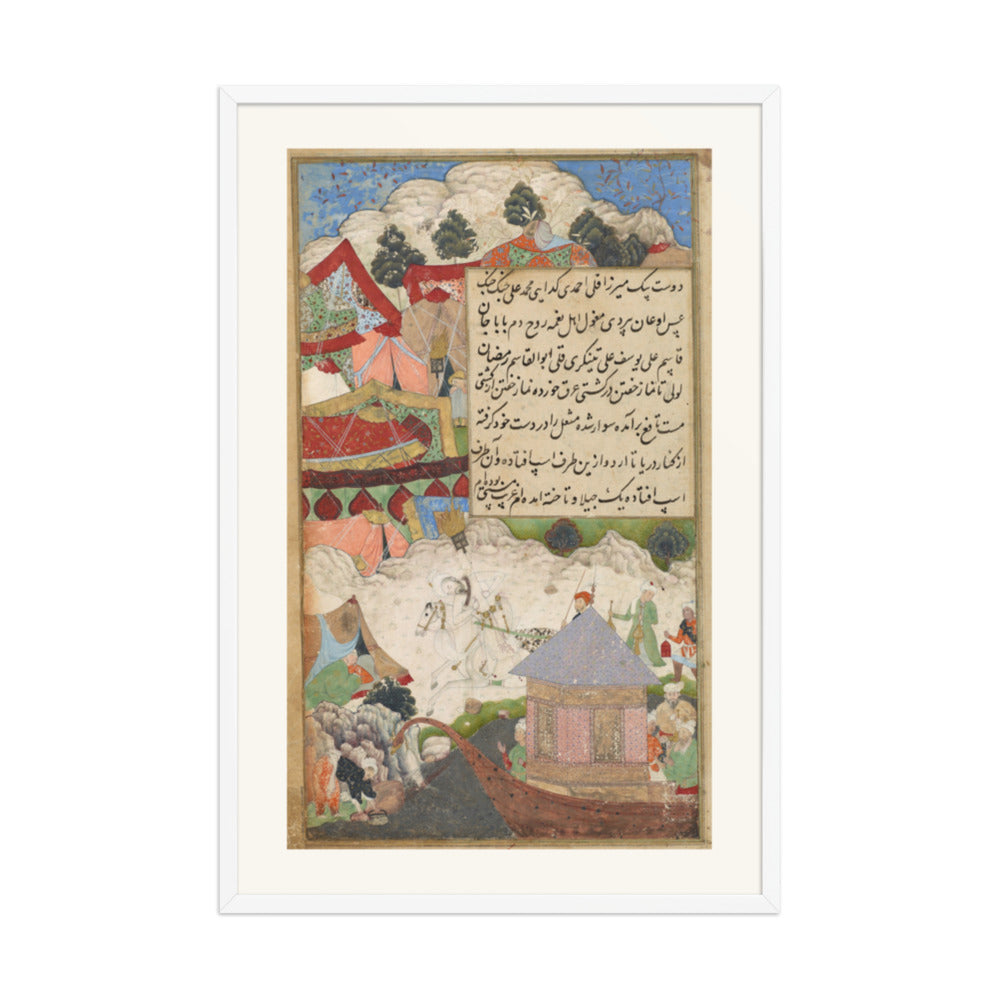 دوست بیک میرزا قلی احمدی کدایی محمد علی جنک جنک
عسس اوغان بردی مغول اهل نغمه روح دم بابا جان
قاسم علی یوسف علی تینکری قلی ابوالقاسم رمضان
لولی تا نماز خفتن در کشتی عرق خورده نماز خفتن از کشتی
مست برآمده سوار شده مشعل را در دست خود کرفته
از کنار دریا تا اردو ازین طرف اسپ افتاده و آن طرف
اسپ افتاده یک جیلاو تاخته آمده ام غریب مستی بوده ام